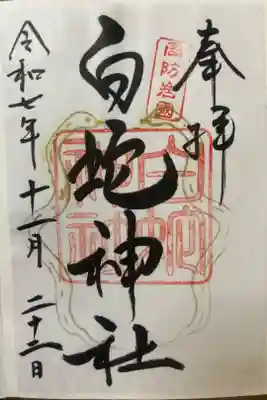 奉拝
周防岩國
白蛇神社
白蛇神社
令和七年十一月二十二日